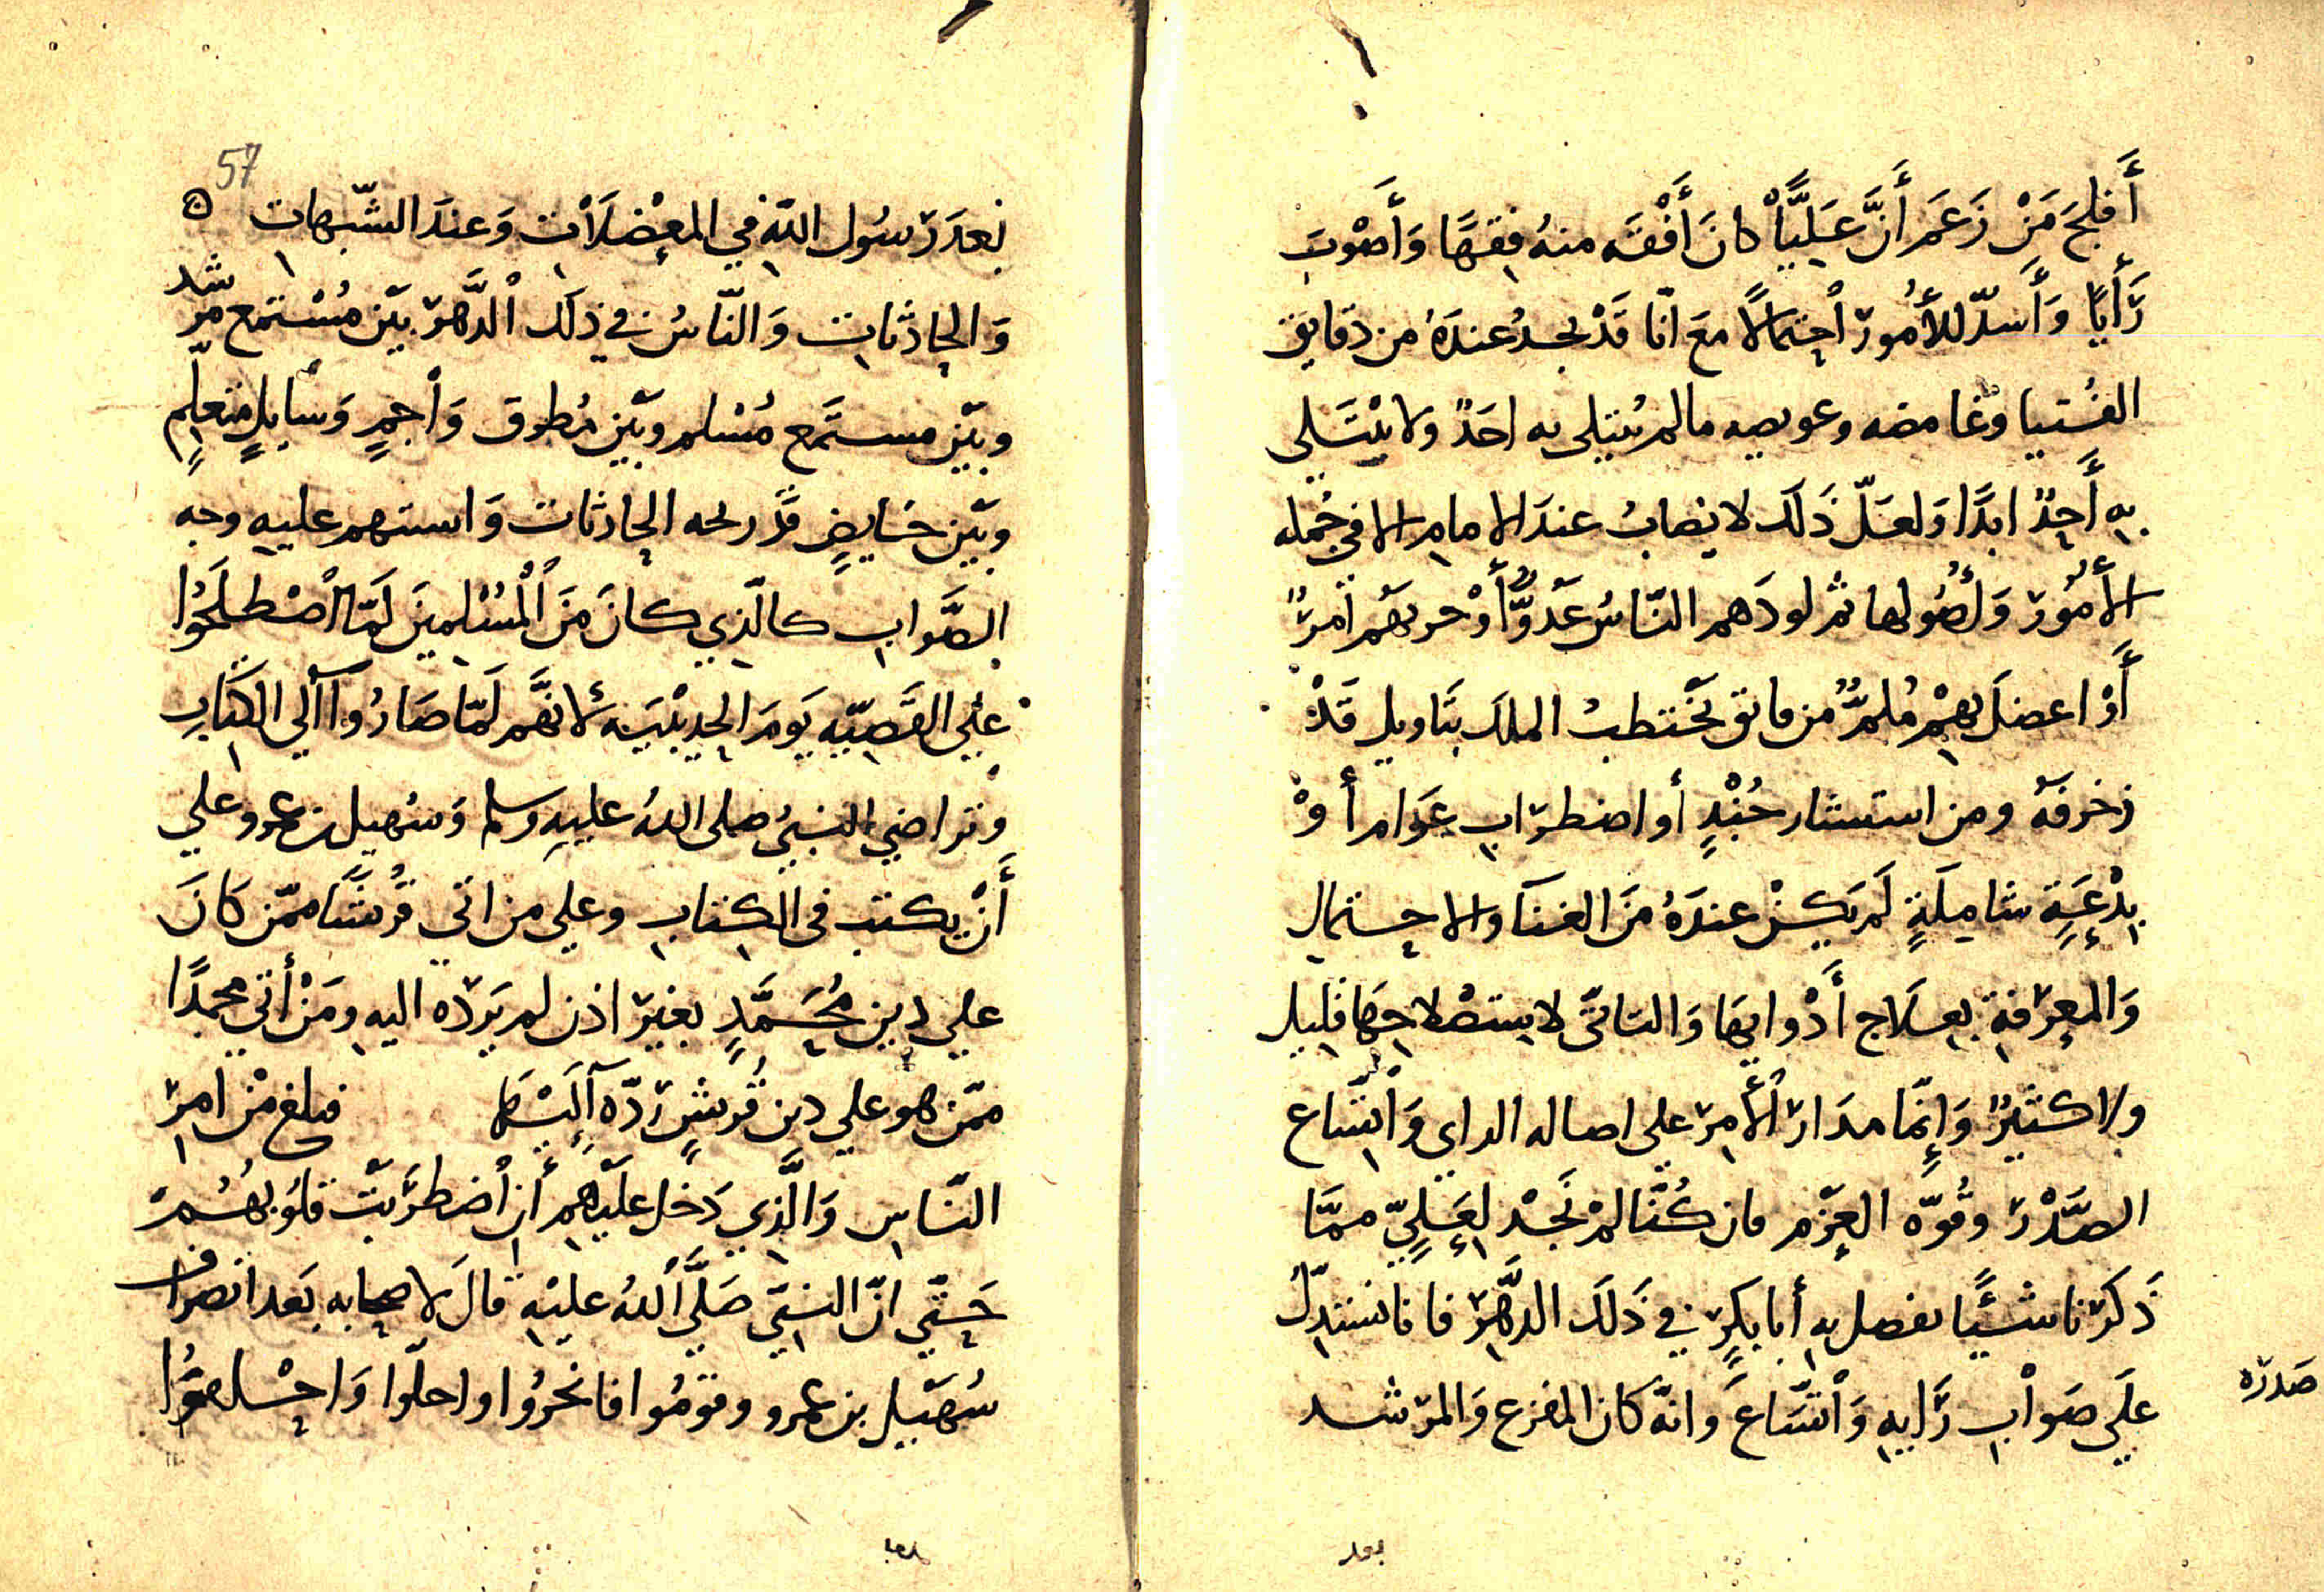 أَفلَح مَنْ زَعَم أَنَّ عَليًّا كانَ أَفْقَه منهُ فِقهًا وَأَصْوَبَ
رَأَيًا وَأَسدّ للأُمُور اْحتمالًا معَ انّا قَدْ نجدُ عندَهُ من دقايق
الفُتيا وَغامضه وعويصه مالم يُبتلى به احَدٌ ولا يُبْتَلى
به أَحدٌ ابدًا وَلعَلّ ذَلك لا يصابُ عندَ الامام الا فى جُمله
الأُمُور وَأُصُولها ثم لو دَهم النّاسُ عَدُوٌّ أَوْ حربهم أمرٌ
أَوْ اعضلَ بهمْ مُلمٌّ من فاتق تختطبُ الملك بتَاويل قَدْ
زخرفهُ ومن استشار جُنْدٍ أو اضطرَاب عَوام أَوْ
بِدْعَةٍ شامِلَةٍ لَم يَكنْ عندَهُ منَ الغنَآ والاحتمال
وَالمعِرْفةِ بعلَاج أَدْوايهَا وَالتاتّى لاستصْلاحِهَا قليل
ولا كثيرٌ وَإنّما مدَارُ الأَمِرْ على اصاله الراي وَاتّسَاع
الصَّدْر وقُوّه العزْم فان كُنَّا لمْ نَجدْ لِعَليٍّ ممّا
ذَكَرْنا شَيًا يفصل به أبا بكرٍ في ذَلكَ الدَّهْر فانا نستدلُّ
علَى صوَاب رَايه وَاتّسَاعَ وانّه كان المفزع وَالمرْشد
صَدرَه
بعد
57
بَعدَ رَسُول اللّه في المعْضلَات وَعندَ الشّبهات
وَالحادثات وَالنّاسُ في ذلَك الدَّهر بيْن مُسْتمع مرْشد
وبَيْن مستَمع مُسْلم وبَيْن مُطرق وَاجمٍ وَسايلٍ متعلّمٍ
وبَيْن خايضٍ قَد ربحه الحادثات وَاستبهم عليه وجه
الصَّوابِ كالّذي كانَ منَ الْمُسْلمينَ لَمّا اْصْطلَحُوا
علي القَضيّه يَومَ الحديْبيَه لأنهَّم لَمّا صَارُوا آلي الكتاب
وتراضي النبيُ صلى اللهُ عليهِ وسلم وَسُهيل بن عمرو علي
أَنْ يكتب فى الكتاب وعلي من اتي قُريشًا ممّن كانَ
علي دين مُحَمَّدٍ بغيرْ اذن لم يَرّده اليه ومَنْ أتي محمدًا
ممّن هو علي دين قُريشٍ ردّه آليْهَا فبلغ منْ امر
النّاس وَالَّذي دَخل عليهم أن اْضطرَبتْ قلُوبهُمْ
حَتّي انّ النبيّ صَلَّي اللهُ عليْه قالَ لاصحابه بَعد انصراف
سُهَيْل بن عمرو وقومُوا فانحرُوا واحلّوا وَاحْلقُوا